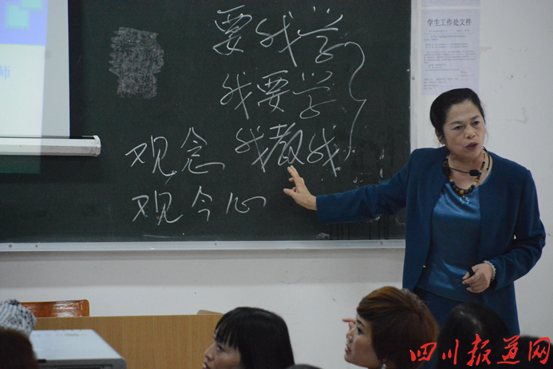 师
要我学
我要学
我教我
观念
观今心
学生工作处文件
四川报道网